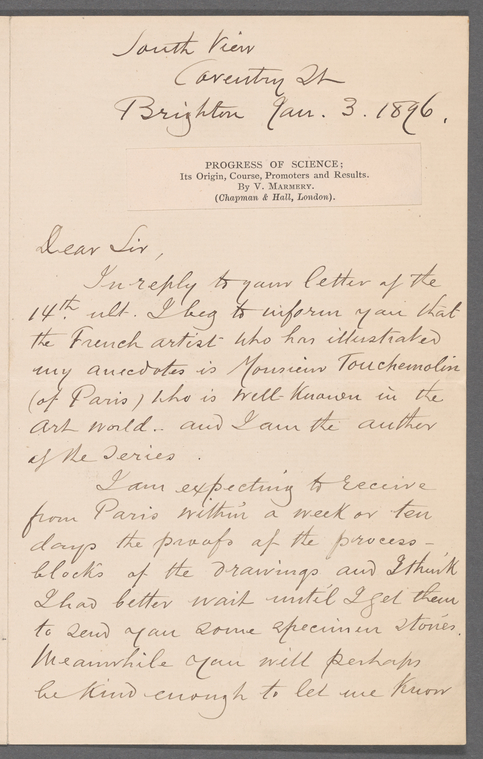 South View
Coventry St
Brighton Jan. 3. 1896.
PROGRESS OF SCIENCE;
Its Origin, Course, Promoters and Results.
By V. Marmery.
(Chapman & Hall, London).
Dear Sir,
In reply to your letter of the
14th ult. I beg to inform you that
the French artist who has illustrated
my anecdotes is Monsieur Touchemolin
(of Paris) who is well-known in the
art world.. and I am the author
of the series.
I am expecting to receive
from Paris within a week or ten
days the proofs of the process-
blocks of the drawings and I think
I had better wait until I get them
to send you some specimen stories.
Meanwhile you will perhaps
be kind enough to let me know